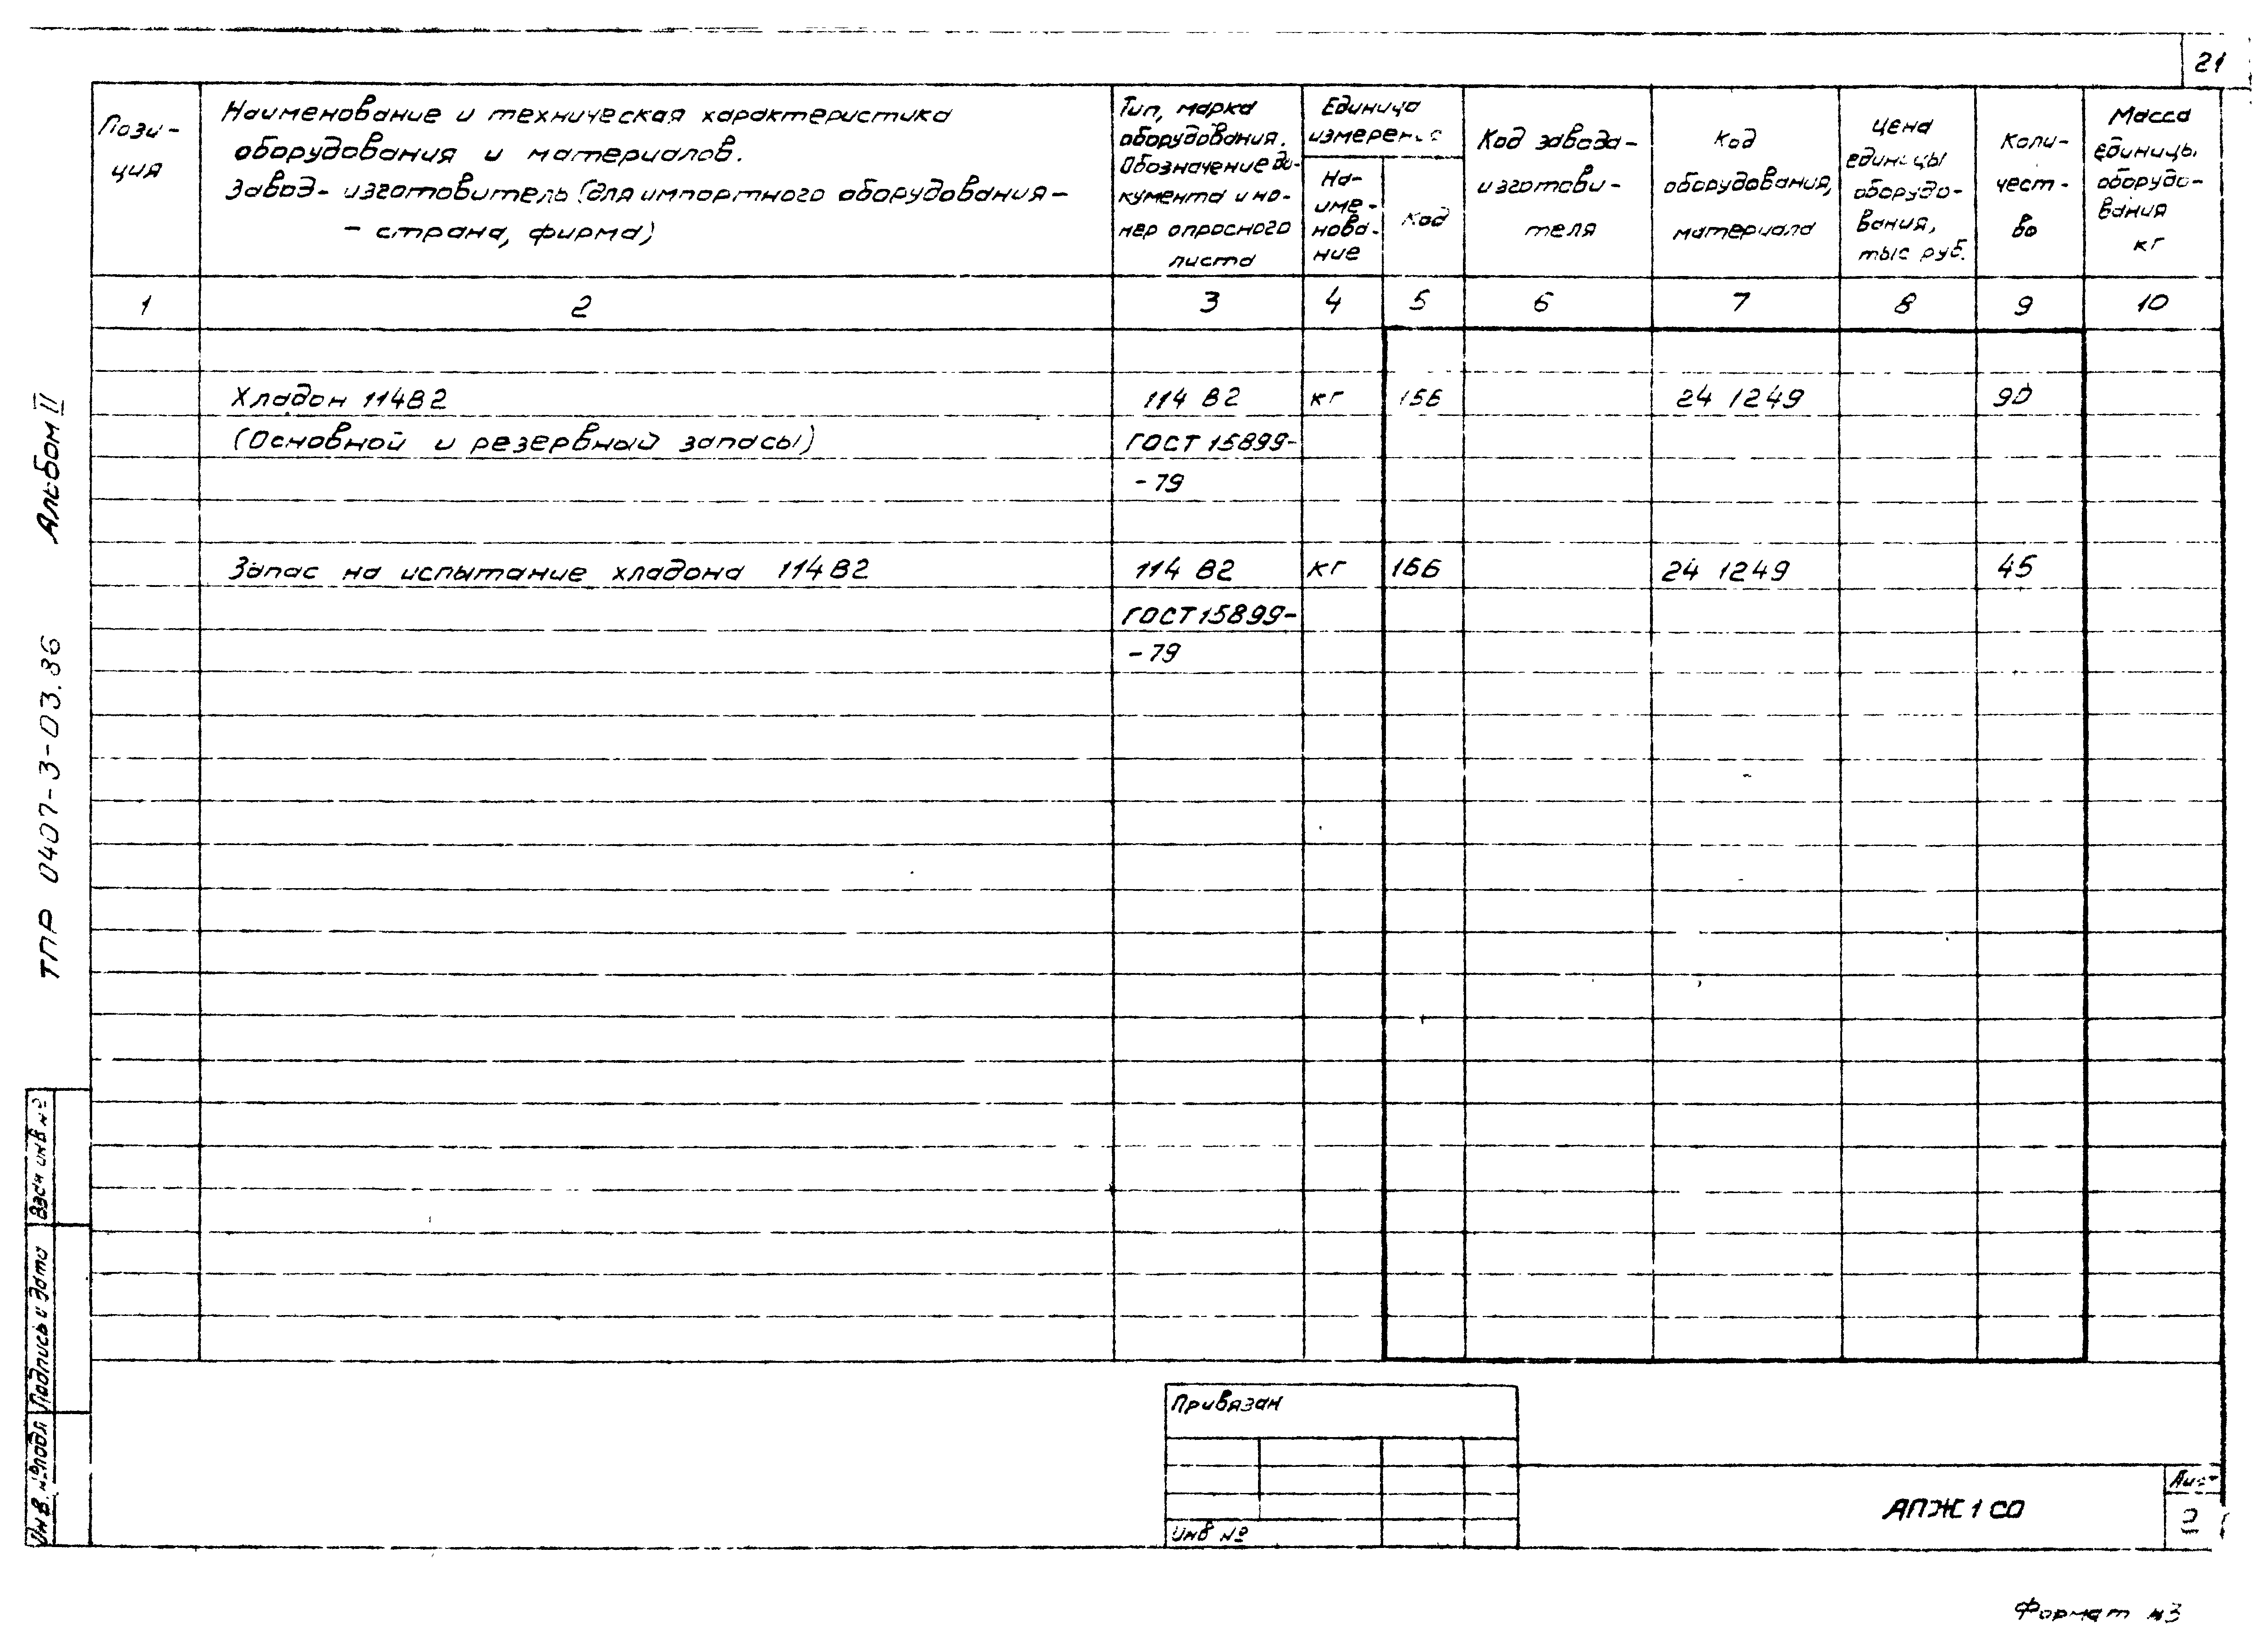 21
Пози-
ция
Наименование и техническая характеристика
оборудования и материалов.
Завод- изготовитель (для импортного оборудования-
- страна, фирма)
Тип, марка
оборудования.
Обозначение до-
кумента и но-
мер опросного
листа
Единица
измерения
На-
име-
нова-
ние
Код
Код завода-
изготови-
теля
Код
оборудования,
материала
Цена
единицы
оборудо-
вания,
тыс руб.
Коли-
чест-
во
Масса
единицы
оборудо-
вания
кг
1 2 3 4 5 6 7 8 9 10
Хладон 114В2 114 В2 кг 166 24 1249 90
(Основной и резервный запасы) ГОСТ 15899-
-79
Запас на испытание хладона 114В2 114 В2 кг 166 24 1249 45
ГОСТ 15899-
-79
Альбом II
ТПР 0407-3-03.86
Взам инв №
Подпись и дата
Инв. № подл
Привязан
Инв №
АПЖ1 СО
Лист
2
Формат А3